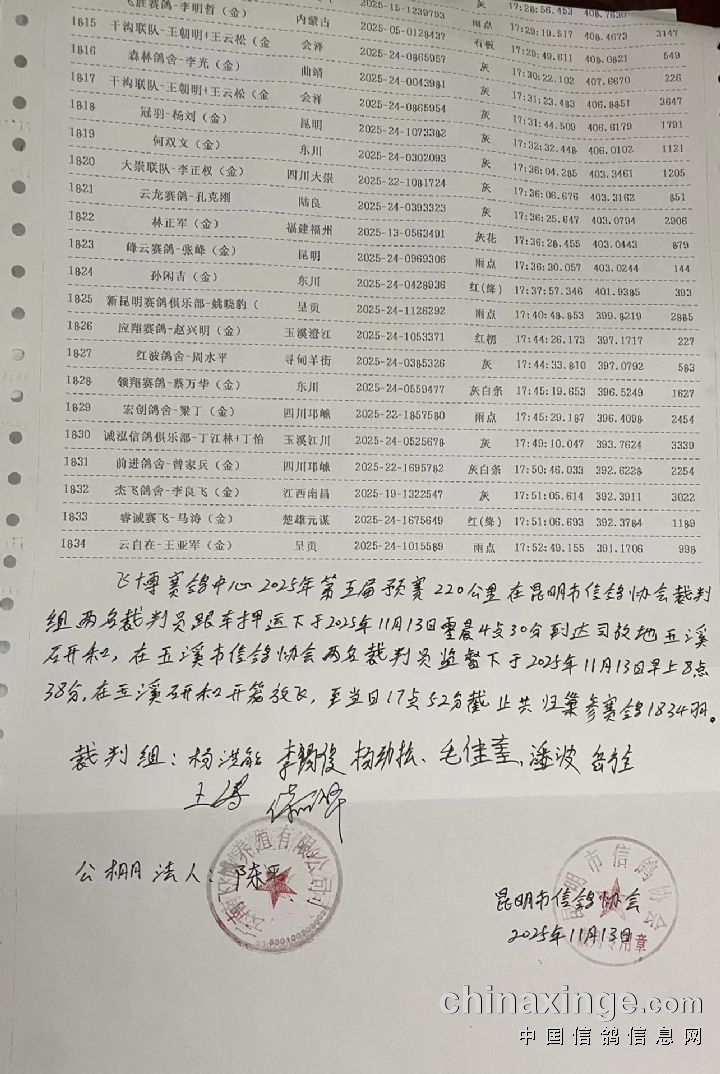 飞胜赛鸽-李明哲（金） 内蒙古 2025-15-1239793 灰 17:28:56.453 408.7630
1815 干沟联队-王朝明+王云松（金 会泽 2025-05-0128437 雨点 17:29:19.517 408.4673 3147
1816 森林鸽舍-李光（金） 曲靖 2025-24-0865957 石板 17:29:49.611 408.0821 549
1817 干沟联队-王朝明+王云松（金 会泽 2025-24-0043981 灰 17:30:22.102 407.6670 226
1818 冠羽-杨刘（金） 昆明 2025-24-0865954 灰 17:31:23.483 406.8851 3647
1819 何双文（金） 东川 2025-24-1073382 灰 17:31:44.509 406.6179 1791
1820 大崇联队-李正权（金） 四川大崇 2025-24-0302093 灰 17:32:32.448 406.0102 1121
1821 云龙赛鸽-孔克刚 陆良 2025-22-1081724 灰 17:36:04.285 403.3461 1205
1822 林正军（金） 福建福州 2025-24-0393323 灰 17:36:06.676 403.3162 851
1823 峰云赛鸽-张峰（金） 昆明 2025-13-0563491 灰 17:36:25.647 403.0794 2906
1824 孙闲吉（金） 东川 2025-24-0969306 灰花 17:36:28.455 403.0443 879
1825 新昆明赛鸽俱乐部-姚晓豹（ 呈贡 2025-24-0428936 雨点 17:36:30.057 403.0244 144
1826 应翔赛鸽-赵兴明（金） 玉溪澄江 2025-24-1126292 红(绛) 17:37:57.346 401.9385 393
1827 红波鸽舍-周水平 寻甸羊街 2025-24-1053371 雨点 17:40:48.853 399.8219 2885
1828 领翔赛鸽-蔡万华（金） 东川 2025-24-0385326 红楞 17:44:26.173 397.1717 227
1829 宏创鸽舍-梁丁（金） 四川邛崃 2025-24-0559477 灰 17:44:33.810 397.0792 583
1830 诚泓信鸽俱乐部-丁江林+丁怡 玉溪江川 2025-22-1857580 灰白条 17:45:19.653 396.5249 1627
1831 前进鸽舍-曾家兵（金） 四川邛崃 2025-24-0525678 雨点 17:45:29.187 396.4098 2454
1832 杰飞鸽舍-李良飞（金） 江西南昌 2025-22-1695782 灰 17:49:10.047 393.7624 3339
1833 睿诚赛飞-马涛（金） 楚雄元谋 2025-19-1322547 灰白条 17:50:46.033 392.6228 2254
1834 云自在-王亚军（金） 呈贡 2025-24-1675649 灰 17:51:05.614 392.3911 3022
2025-24-1015589 红(绛) 17:51:06.693 392.3784 1189
雨点 17:52:49.155 391.1706 998
飞博赛鸽中心2025年第五届预赛220公里在昆明市信鸽协会裁判
组两名裁判员跟车押运下于2025年11月13日零晨4点30分到达司放地玉溪
研和，在玉溪市信鸽协会两名裁判员监督下于2025年11月13日早上8点
38分，在玉溪研和开笼放飞，至当日17点52分截止共归巢参赛鸽1834羽。
裁判组：杨洪 李锡俊 杨劲松、毛佳 潘波
王涛
公棚法人：陈平
昆明市信鸽协会
2025年11月13日
昆明市信鸽协会
裁判专用章
chinaxinge.com
中国信鸽信息网